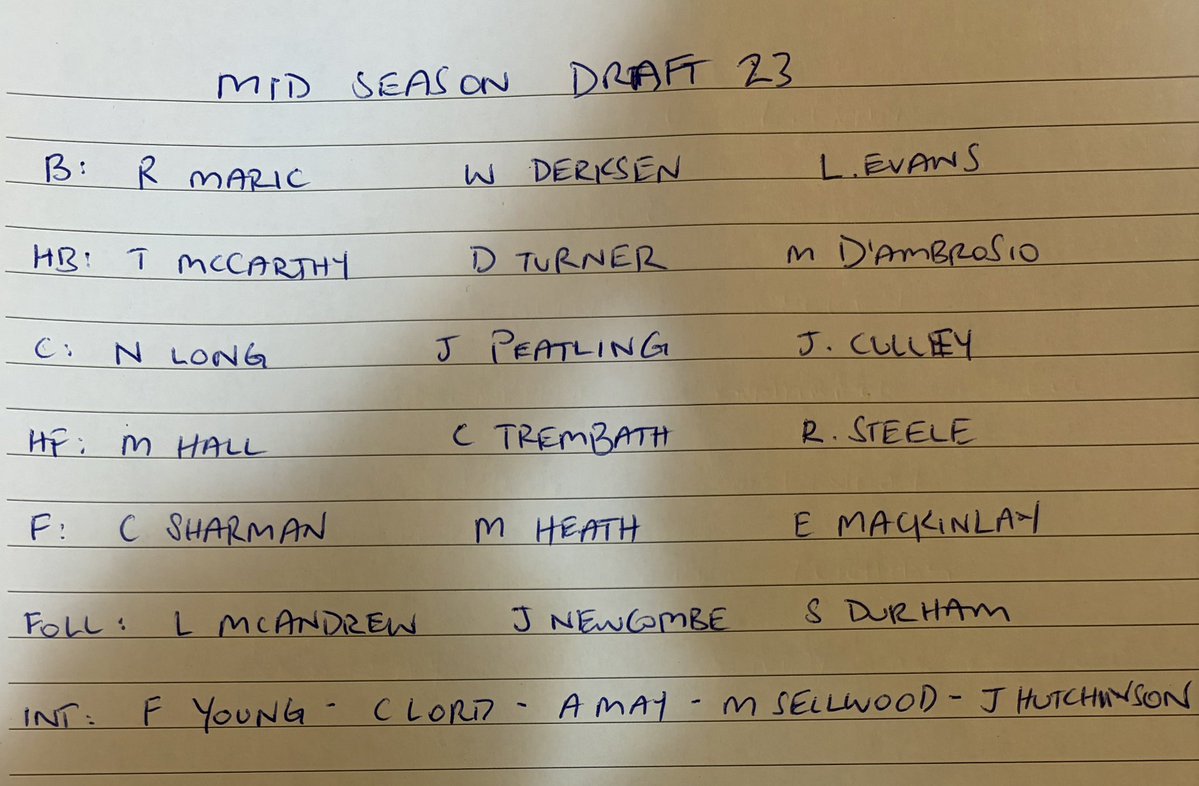 MID SEASON DRAFT 23
B: R MARIC W DERKSEN L. EVANS
HB: T MCCARTHY D TURNER M D'AMBROSIO
C: N LONG J PEATLING J. CULLEY
HF: M HALL C TREMBATH R. STEELE
F: C SHARMAN M HEATH E MACKINLAY
FOLL: L MCANDREW J NEWCOMBE S DURHAM
INT: F YOUNG - C LORD - A MAY - M SELLWOOD - J HUTCHINSON